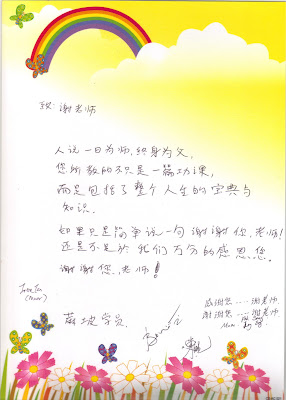 致: 谢老师
人说一日为师,终身为父,
您所教的不只是一篇功课,
而是包括了整个人生的宝典与
知识.
如果只是简单说一句 谢谢您,老师!
还是不足於我们万分的感恩您.
谢谢您,老师!
麻坡学员.
感谢您 …… 谢老师
谢谢您 …… 谢老师